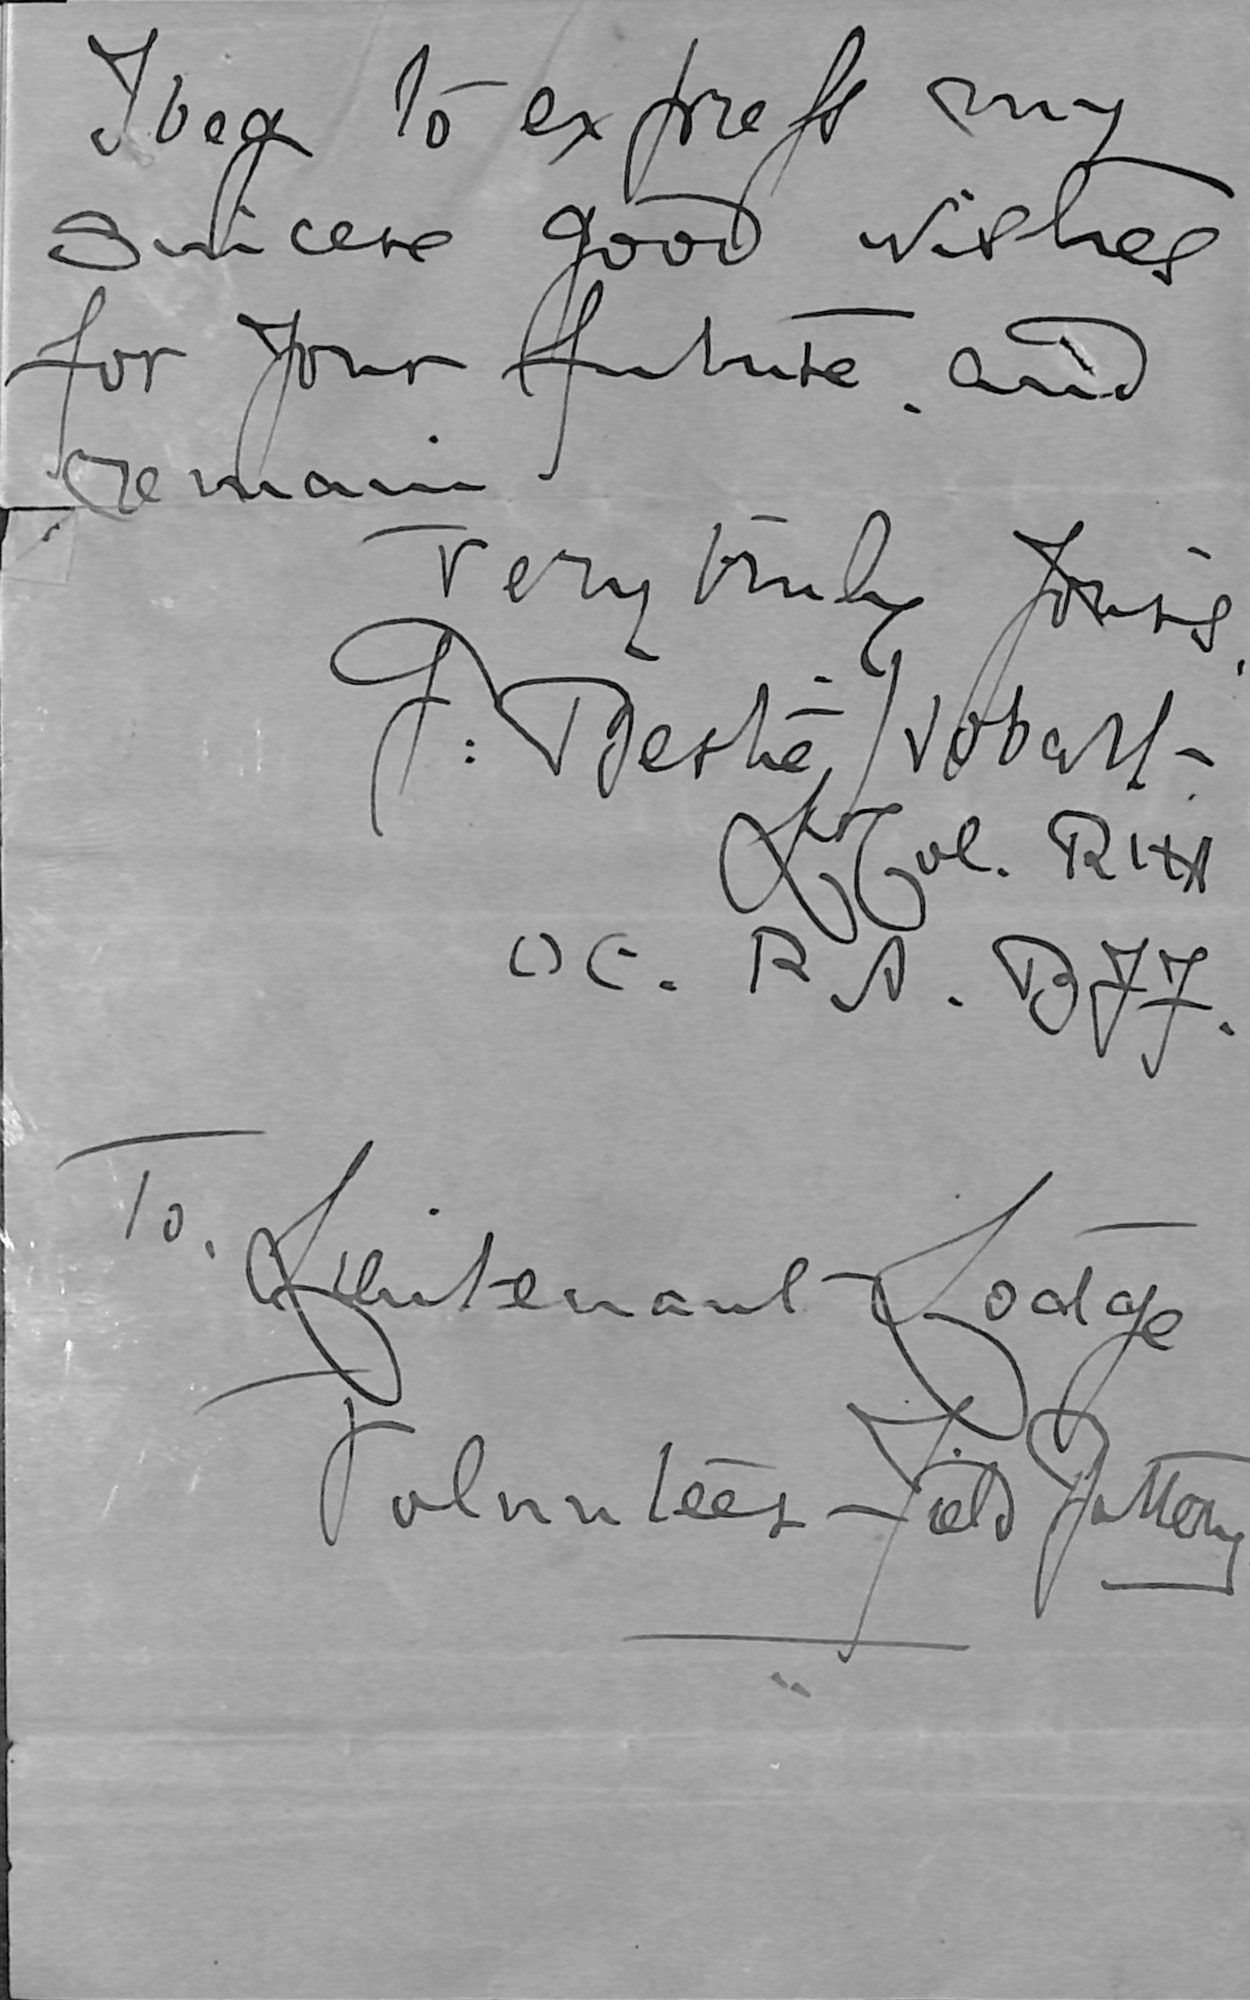 I beg to express my
sincere good wishes
for your future. and
remain
Very truly yours,
F. Beshé Hobart-
Lt Col. RHA
OC. R.A. BFF.
To. Lieutenant Lodge
Volunteer Field Battery